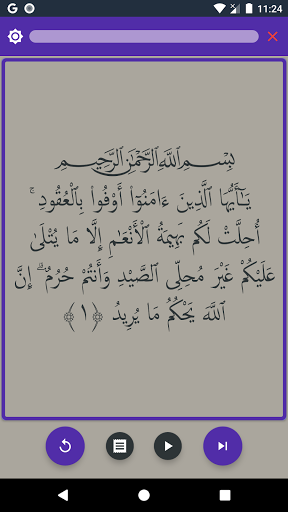 11:24
بِسْمِ ٱللَّهِ ٱلرَّحْمَٰنِ ٱلرَّحِيمِ
يَـٰٓأَيُّهَا ٱلَّذِينَ ءَامَنُوٓا۟ أَوْفُوا۟ بِٱلْعُقُودِ ۚ
أُحِلَّتْ لَكُم بَهِيمَةُ ٱلْأَنْعَـٰمِ إِلَّا مَا يُتْلَىٰ
عَلَيْكُمْ غَيْرَ مُحِلِّى ٱلصَّيْدِ وَأَنتُمْ حُرُمٌ ۗ إِنَّ
ٱللَّهَ يَحْكُمُ مَا يُرِيدُ ﴿١﴾